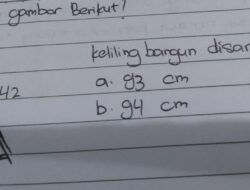 gambar Berikut!
keliling bangun disam
42
a. 93 cm
b. 94 cm